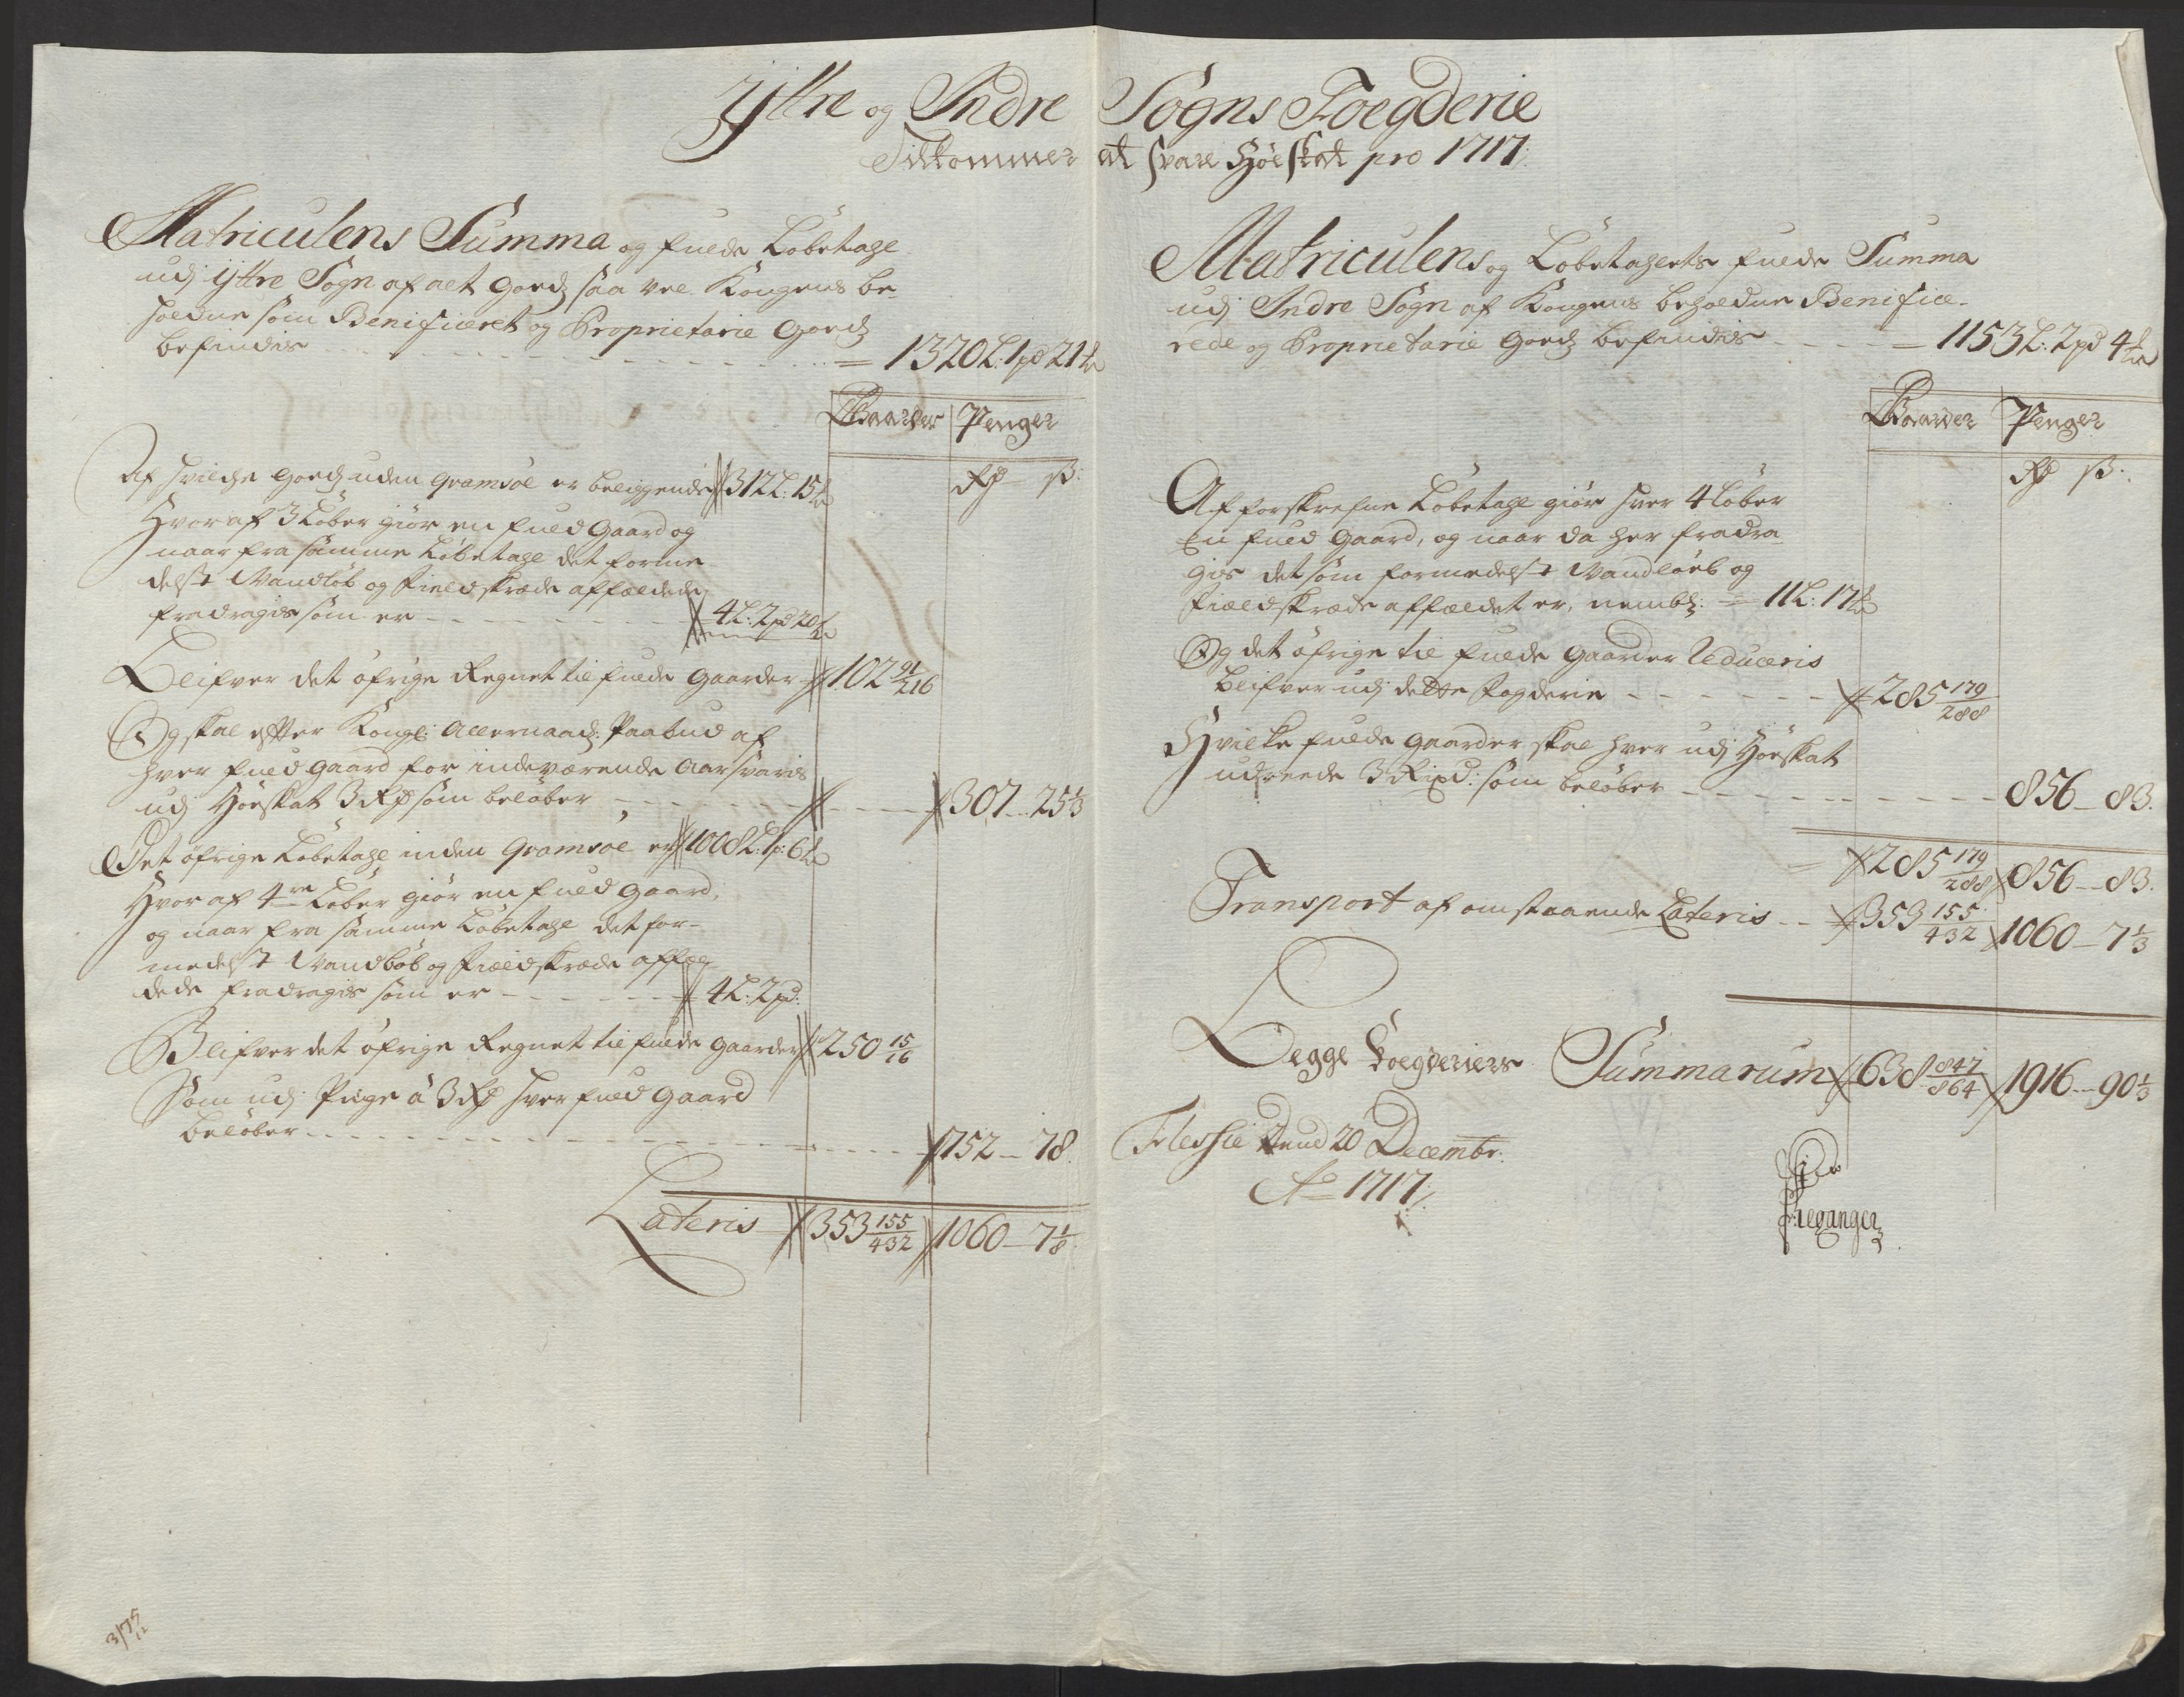 Yttre og Indre Sogns Foegderie
Tilkommer at svare Høeskat pro 1717
Matriculens Summa og fulde Løbetahl
udj ÿttre Sogn af alt Goeds saa vel Kongens be-
holdne som Benificeret og Proprietarie Goeds
befindis - - - = 1320L: 1pd 21 ℔
Gaarder Penger
Rd ß:
Af hvilche Goeds uden Gramsøe er beliggende 312L: 15 ℔
Hvoraf 3 Løber giør en fuld Gaard og
naar fra samme Løbetahl det forme-
delst Vandløb og Fieldskrede affældede
fradragis som er - - - 4L: 2pd 20 ℔
Blifver det øfrige Regnet til fulde Gaarder 102 91/216
Og skal efter Kongl: Allernaads: Paabud af
hver fuld Gaard for indeværende Aar svaris
udj Høeskat 3 Rd som beløber - - - 307 - 25 1/3
Det øfrige Løbetahl inden Gramsøe er 1008L: 1p: 6 ℔
Hvoraf 4re Løber giør en fuld Gaard,
og naar fra samme Løbetahl det for-
medelst Vandløb og Fieldskrede affæl-
dede fradragis som er - - - 4L: 2pd:
Blifver det øfrige Regnet til fulde Gaarder 250 15/16
Som udj Penge á 3 Rd hver fuld Gaard
beløber - - - 752 - 78.
Lateris 353 155/432 1060 - 7 1/8
3/75
12
Matriculens og Løbetahlets fulde Summa
udj Indre Sogn af Kongens beholdne Benifice-
rede og Proprietarie Goeds befindis - - - = 1153L: 2pd 4 ℔
Gaarder Penger
Rd ß:
Af forskrefne Løbetahl giør hver 4 Løber
En fuld Gaard, og naar da her fradra-
gis det som formedelst Vandløeb og
Fieldskrede affældet er, nembl: = 11L: 17 ℔
Og det øfrige til fulde Gaarder Reduceris
blifver udj dette Fogderie - - - 285 179/288
Hvilke fulde Gaarder skal hver udj Høeskat
udreede 3 Rixd: som beløber - - - 856 - 83.
= 285 179/288 856 - 83.
Transport af omstaaende Lateris - - 353 155/432 1060 - 7 1/3
Begge Foegderiers Summarum 638 847/864 1916 - 90 1/3
Flessie Dend 20 Decembr:
Ao 1717